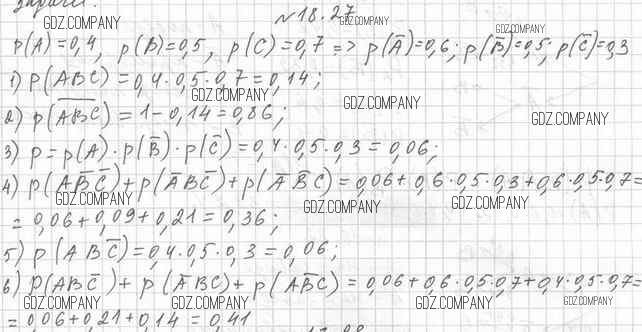 задачи.
№18.27
p(A)=0,4, p(B)=0,5, p(C)=0,7 => p(A̅)=0,6; p(B̅)=0,5; p(C̅)=0,3
1) p(ABC)=0,4·0,5·0,7=0,14;
2) p(A̅B̅C̅)=1-0,14=0,86;
3) p=p(A)·p(B̅)·p(C̅)=0,4·0,5·0,3=0,06;
4) p(AB̅C̅)+p(A̅BC̅)+p(A̅B̅C)=0,06+0,6·0,5·0,3+0,6·0,5·0,7=
=0,06+0,09+0,21=0,36;
5) p(ABC̅)=0,4·0,5·0,3=0,06;
6) p(ABC̅)+p(A̅BC)+p(AB̅C)=0,06+0,6·0,5·0,7+0,4·0,5·0,7=
=0,06+0,21+0,14=0,41
GDZ.COMPANY
GDZ.COMPANY
GDZ.COMPANY
GDZ.COMPANY
GDZ.COMPANY
GDZ.COMPANY
GDZ.COMPANY
GDZ.COMPANY
GDZ.COMPANY
GDZ.COMPANY
GDZ.COMPANY
GDZ.COMPANY
GDZ.COMPANY